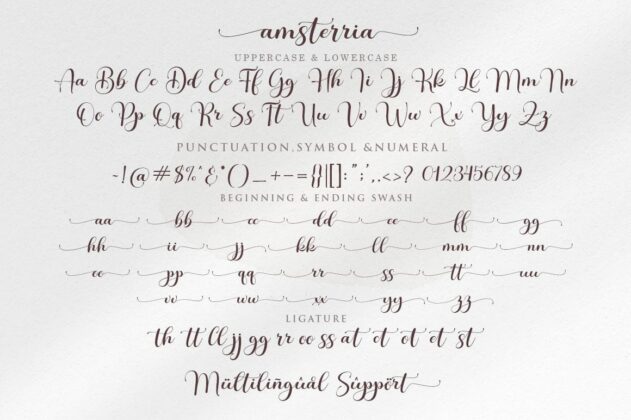 amsterria
UPPERCASE & LOWERCASE
Aa Bb Cc Dd Ee Ff Gg Hh Ii Jj Kk Ll Mm Nn
Oo Pp Qq Rr Ss Tt Uu Vv Ww Xx Yy Zz
PUNCTUATION,SYMBOL &NUMERAL
~!@#$%^&*()_+-={}|[]:";',.<>? 0123456789
BEGINNING & ENDING SWASH
aa bb cc dd ee ff gg
hh ii jj kk ll mm nn
oo pp qq rr ss tt uu
vv ww xx yy zz
LIGATURE
th tt ll jj gg rr oo ss at ct ot et st
Mültilingüál Süppört